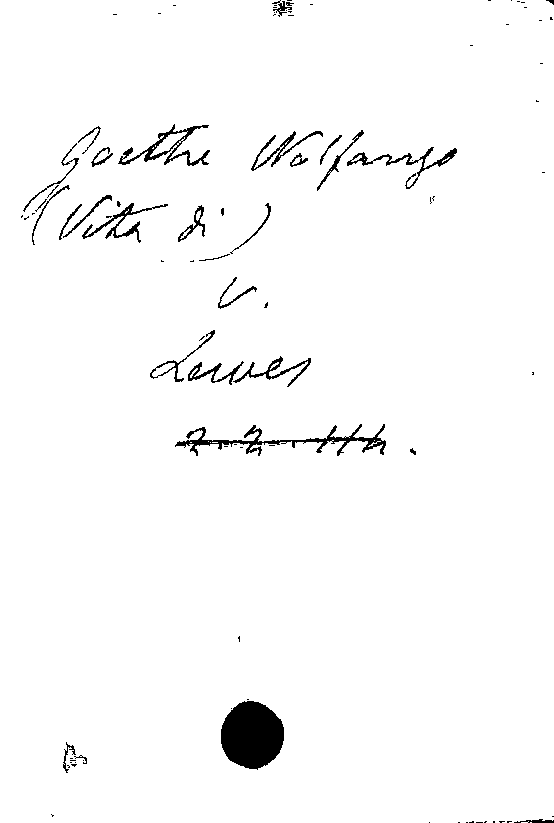 Goethe Wolfango
(Vita di)
V.
Lewes
2.2.114.